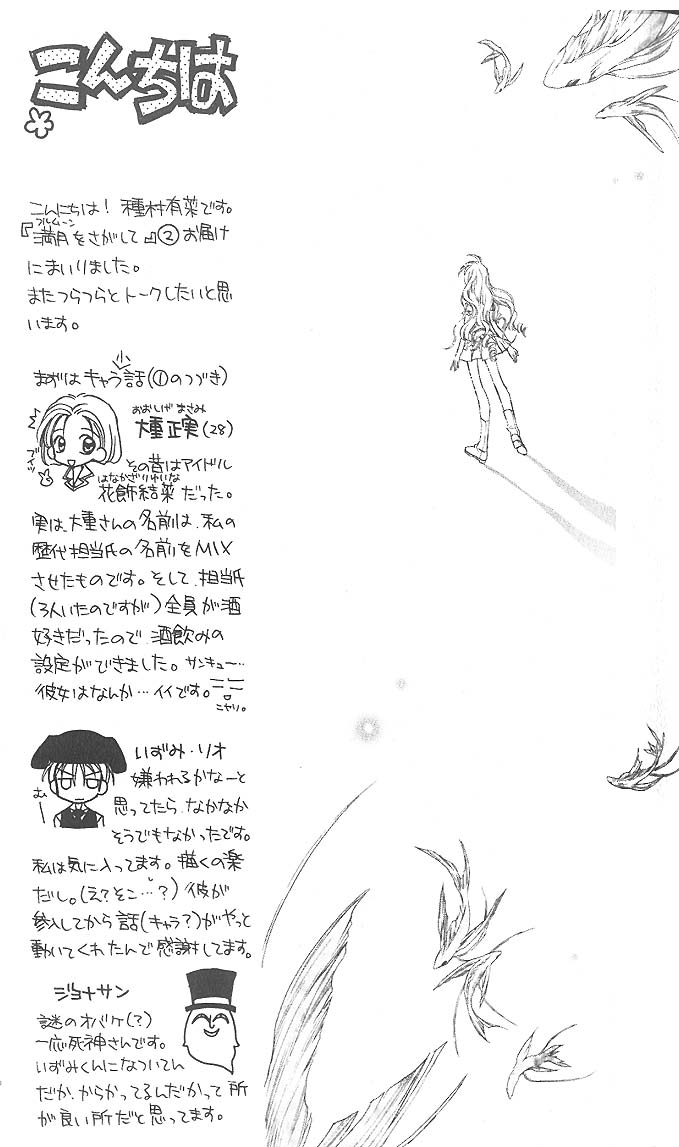 こんちは
こんにちは! 種村有菜です。
フルムーン
『満月をさがして』② お届け
にまいりました。
またつらつらとトークしたいと思
います。
小
まずは キャラ話(①のつづき)
おおしげ まさみ
大重正実(28)
ブイッ
その昔はアイドル
はなかざりゆいな
花飾結菜だった。
実は、大重さんの名前は、私の
歴代担当氏の名前をMIX
させたものです。そして、担当氏
(3人いたのですが)全員が酒
好きだったので、酒飲みの
設定ができました。サンキュー…
彼女はなんか…イイです。
ニヤリ。
いずみ・リオ
むー
嫌われるかなーと
思ってたら、なかなか
そうでもなかったです。
私は気に入ってます。描くの楽
だし。(え?そこ…?) 彼が
参入してから話(キャラ?)がやっと
動いてくれたんで感謝してます。
ジョナサン
謎のオバケ(?)
一応死神さんです。
いずみくんになついてん
だか、からかってるんだかって所
が良い所だと思ってます。